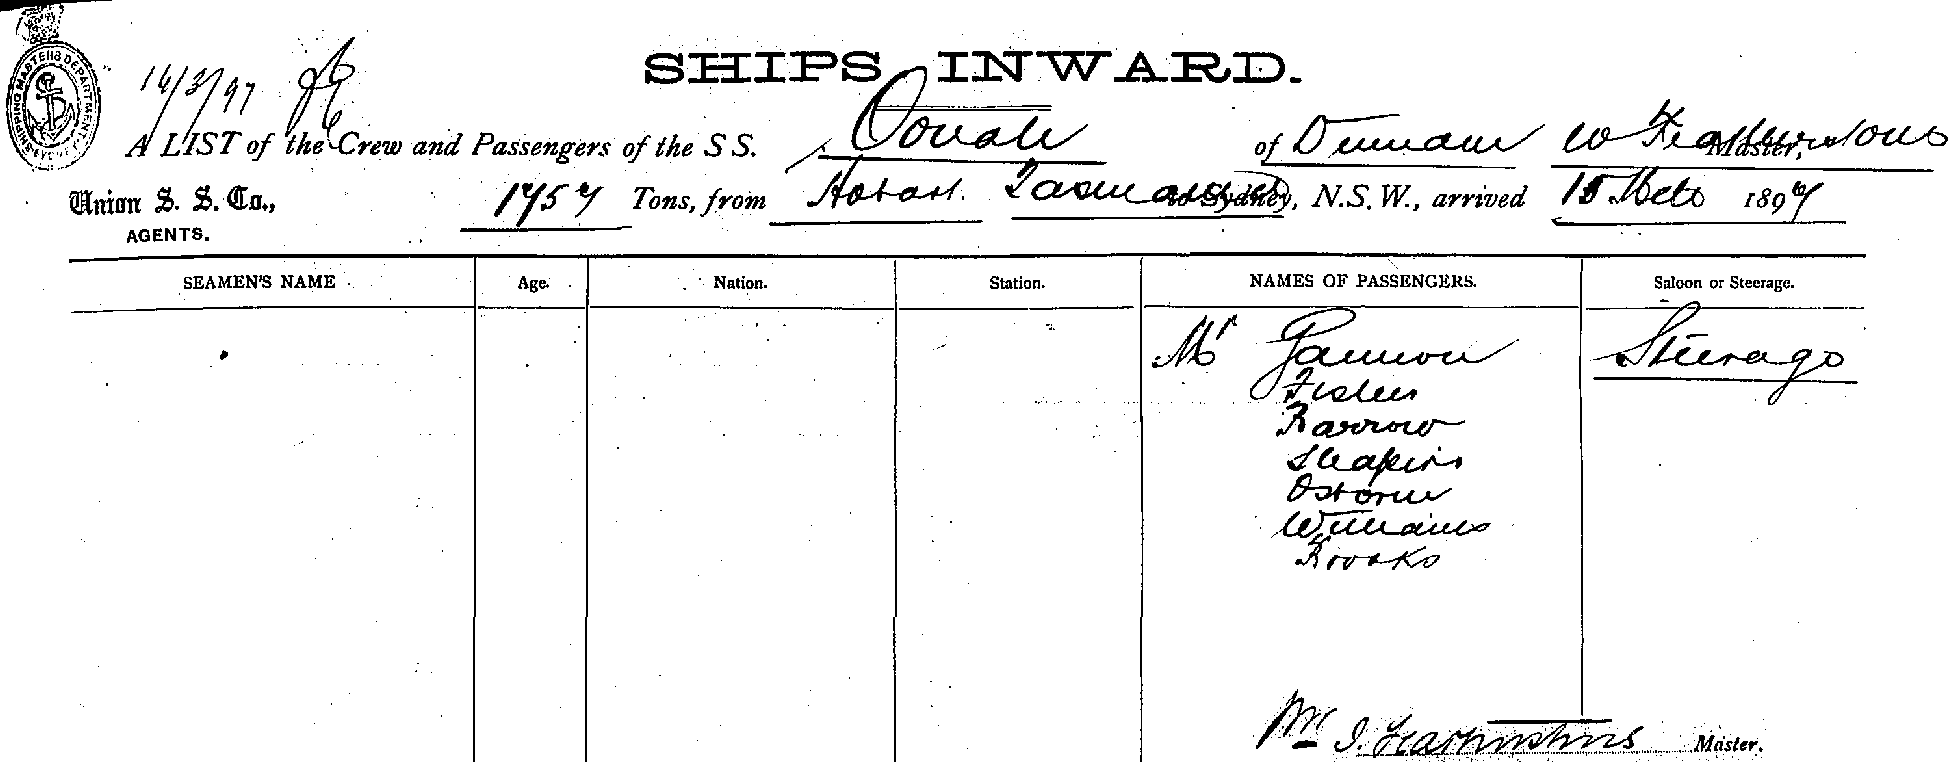 SHIPS INWARD.
16/3/97
A LIST of the Crew and Passengers of the S S. Oonah of Dunedin W Featherstone Master,
Union S. S. Co., 1757 Tons, from Hobart. Tasmania to Sydney, N.S.W., arrived 15 Mch 1897
AGENTS.
SEAMEN'S NAME Age. Nation. Station. NAMES OF PASSENGERS. Saloon or Steerage.
Mr Gannon Steerage
Fisher
Barrow
Shapiro
Osborne
Williams
Brooks
Wm J. Featherstone Master.